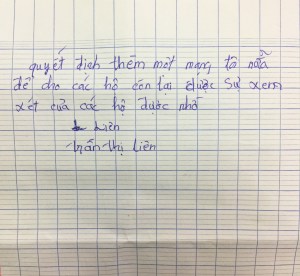 quyết định thêm một mạng tâ nữa
để cho các hộ còn lại được sự xem
xét của các hộ được nhờ
Liên
trần thị Liên